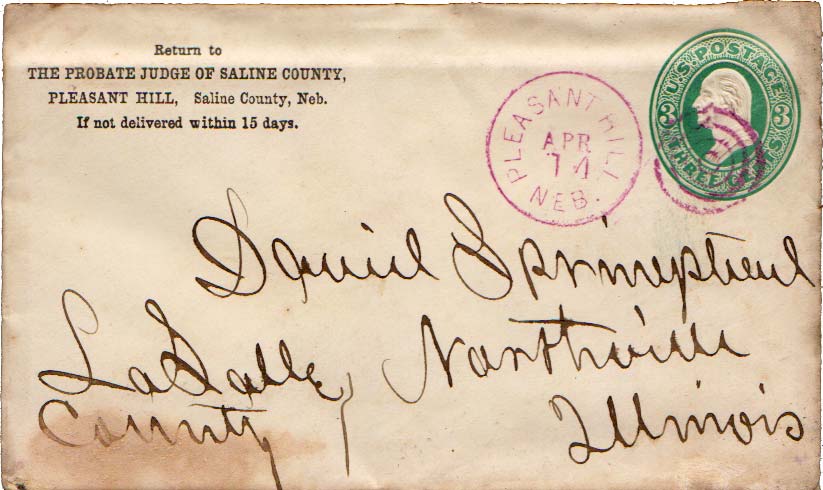 Return to
THE PROBATE JUDGE OF SALINE COUNTY,
PLEASANT HILL, Saline County, Neb.
If not delivered within 15 days.
PLEASANT HILL
APR
14
NEB.
U.S. POSTAGE
3 3
THREE CENTS
Daniel
LaSalle Northville
County Illinois